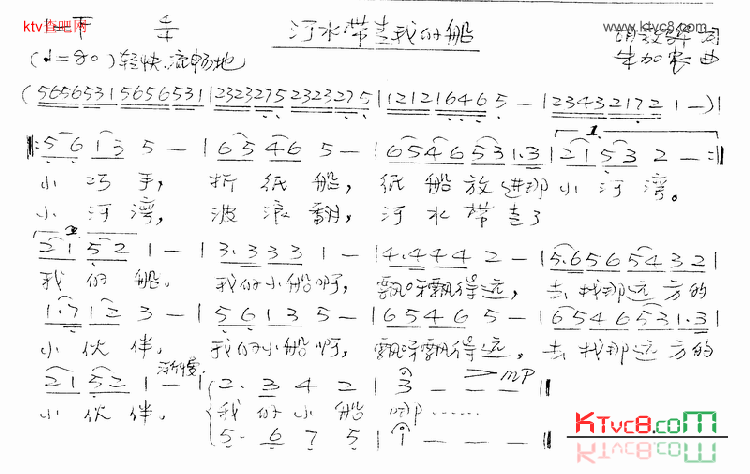 ktv查吧网
www.ktvc8.com
1=F 2/4
河水带走我的船
词
(♩=80) 轻快、流畅地
牛加农 曲
(5656531 5656531 | 2323275 2323275 | 12121646 5 - | 23432172 1 -) |
‖: 56 13 5 - | 65 46 5 - | 6546 531.3 | 21 53 2 - :‖
1.
小巧手，折纸船，纸船放进那小河湾。
小河湾，波浪翻，河水带走了
2.
21 52 1 - | 3.333 1 - | 4.444 2 - | 5.656 54321 |
我的船。我的小船啊，飘呀飘得远，去找那远方的
1.7 12 3 - | 56 13 5 - | 65 46 5 - | 6546 531.3 |
小伙伴，我的小船啊，飘呀飘得远。去找那远方的
21 52 1 - | 2. 3 4 2 | 3 - - - ‖
渐慢
mp
小伙伴。我的小船啊……
5. 6 7 5 | 1 - - - ‖
KTvc8.com